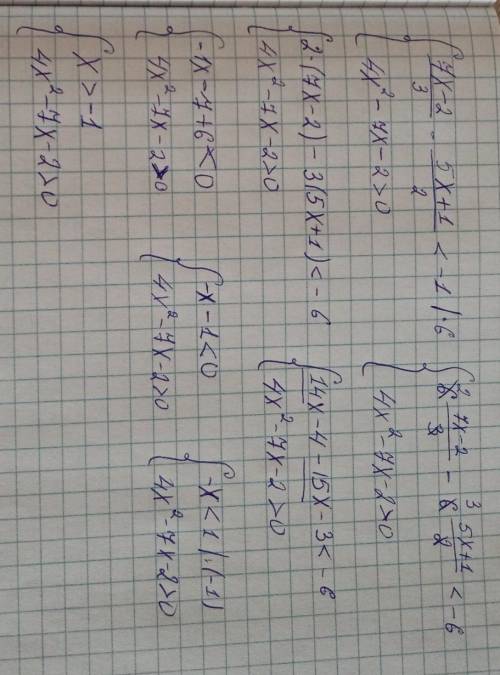 { (7x-2)/3 - (5x+1)/2 < -1 |·6
{ 4x² - 7x - 2 > 0
{ ²6 (7x-2)/3 - ³6 (5x+1)/2 < -6
{ 4x² - 7x - 2 > 0
{ 2·(7x-2) - 3(5x+1) < -6
{ 4x² - 7x - 2 > 0
{ 14x - 4 - 15x - 3 < -6
{ 4x² - 7x - 2 > 0
{ -1x - 7 + 6 < 0
{ 4x² - 7x - 2 > 0
{ -x - 1 < 0
{ 4x² - 7x - 2 > 0
{ -x < 1 |·(-1)
{ 4x² - 7x - 2 > 0
{ x > -1
{ 4x² - 7x - 2 > 0